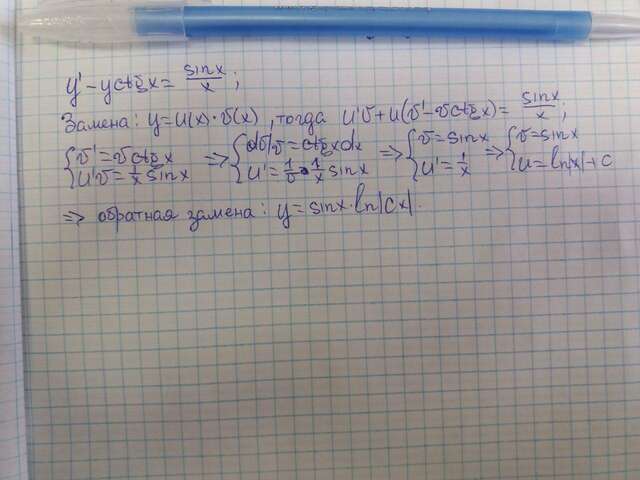 y' - y ctg x = sin x / x ;
Замена: y = u(x) · v(x), тогда u'v + u(v' - v ctg x) = sin x / x ;
{ v' = v ctg x ⇒ { dv/v = ctg x dx ⇒ { v = sin x ⇒ { v = sin x
{ u'v = 1/x sin x { u' = 1/v · 1/x sin x { u' = 1/x { u = ln|x| + C
⇒ обратная замена: y = sin x · ln|Cx|.